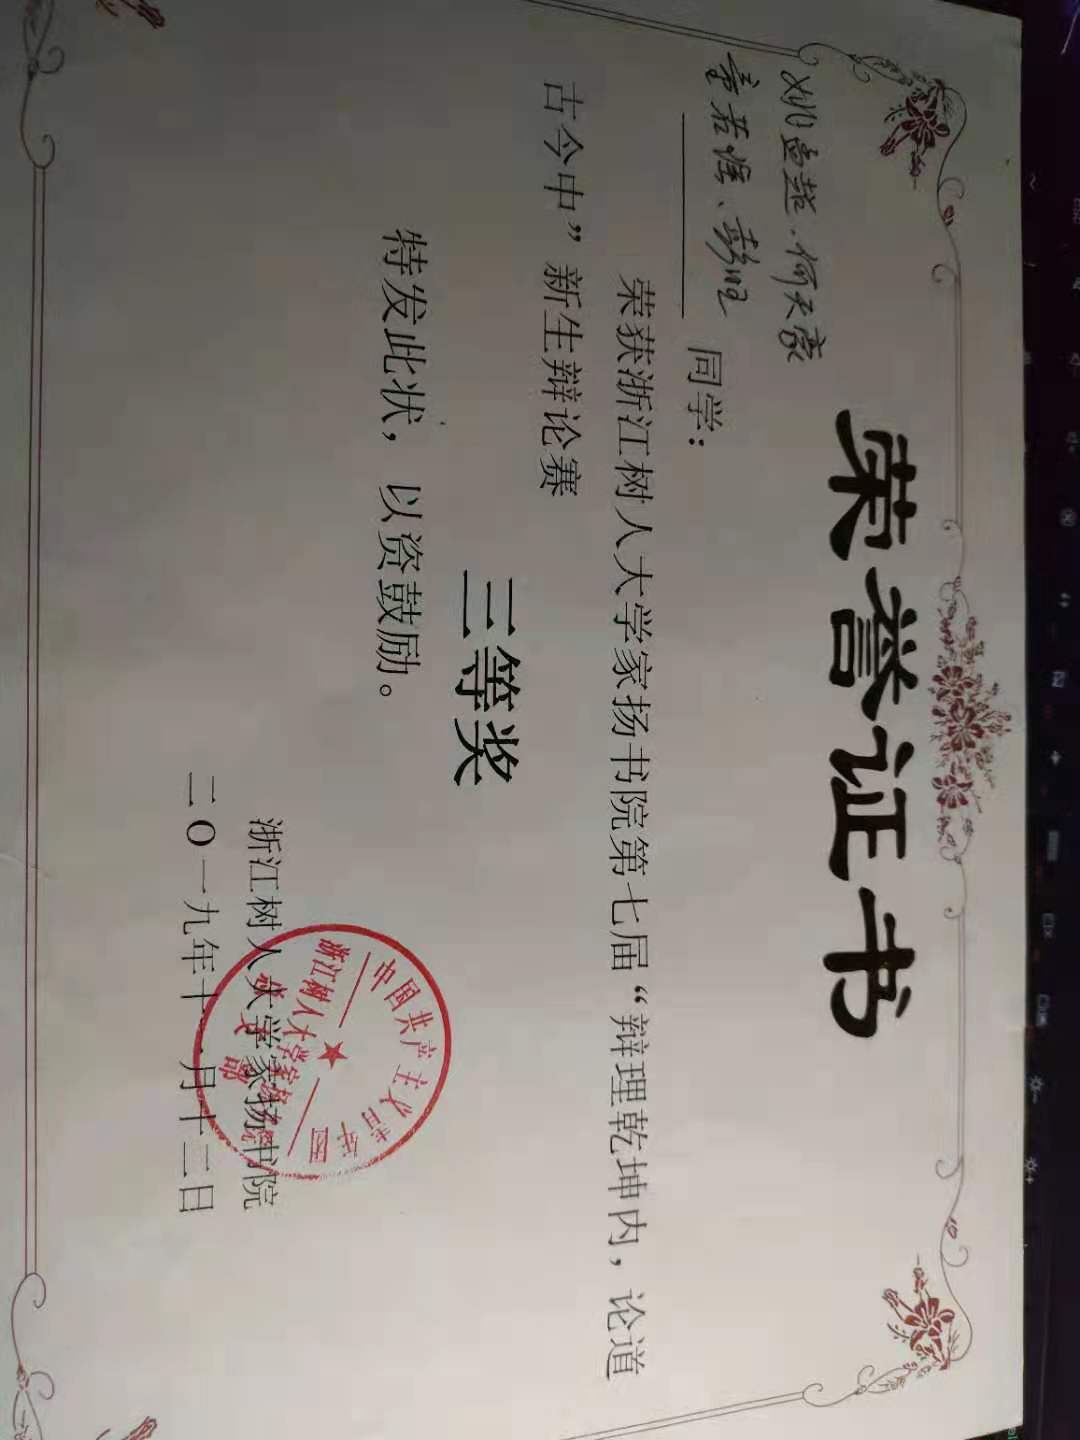 荣誉证书
姚孟超、何天豪
童若煜、彭旭 同学:
荣获浙江树人大学家扬书院第七届“辩理乾坤内，论道
古今中”新生辩论赛
三等奖
特发此状，以资鼓励。
浙江树人大学家扬书院
二〇一九年十一月十二日
中国共产主义青年团
浙江树人大学家扬书院